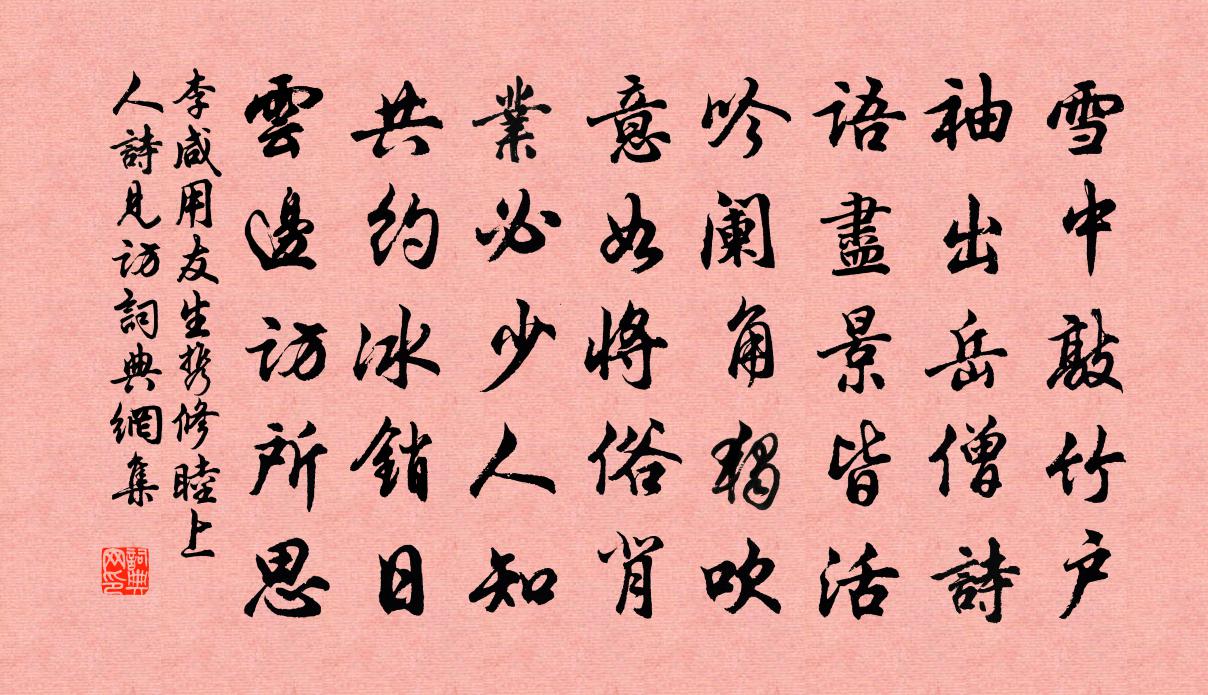 雪中敲竹户
袖出岳僧詩
語盡景皆活
吟阑角獨吹
意如將俗背
業必少人知
共約冰銷日
雲邊訪所思
李咸用友生携修睦上
人詩見訪詞典網集
詞典网印